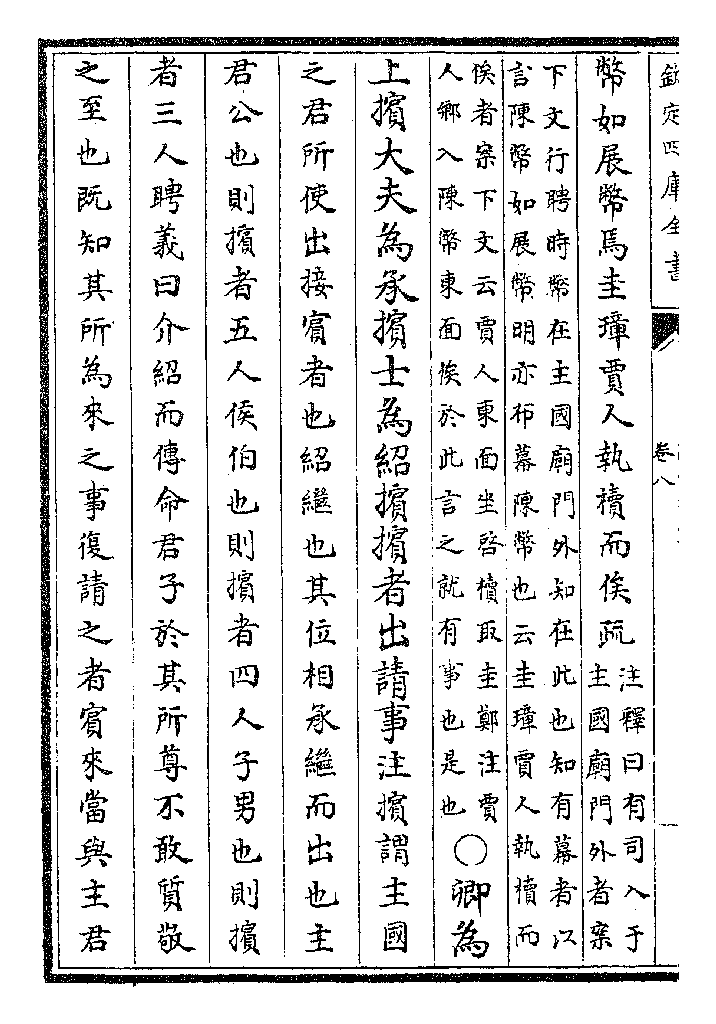 欽定四庫全書
卷八
幣如展幣焉圭璋賈人執櫝而俟疏
注釋曰有司入于
主國廟門外者案
下文行聘時幣在主國廟門外知在此也知有幕者以
言陳幣如展幣明亦布幕陳幣也云圭璋賈人執櫝而
俟者案下文云賈人東面坐啓櫝取圭鄭注賈
人鄉入陳幣東面俟於此言之就有事也是也
○卿為
上擯大夫為承擯士為紹擯擯者出請事注擯謂主國
之君所使出接賓者也紹繼也其位相承繼而出也主
君公也則擯者五人侯伯也則擯者四人子男也則擯
者三人聘義曰介紹而傳命君子於其所尊不敢質敬
之至也既知其所為來之事復請之者賓來當與主君